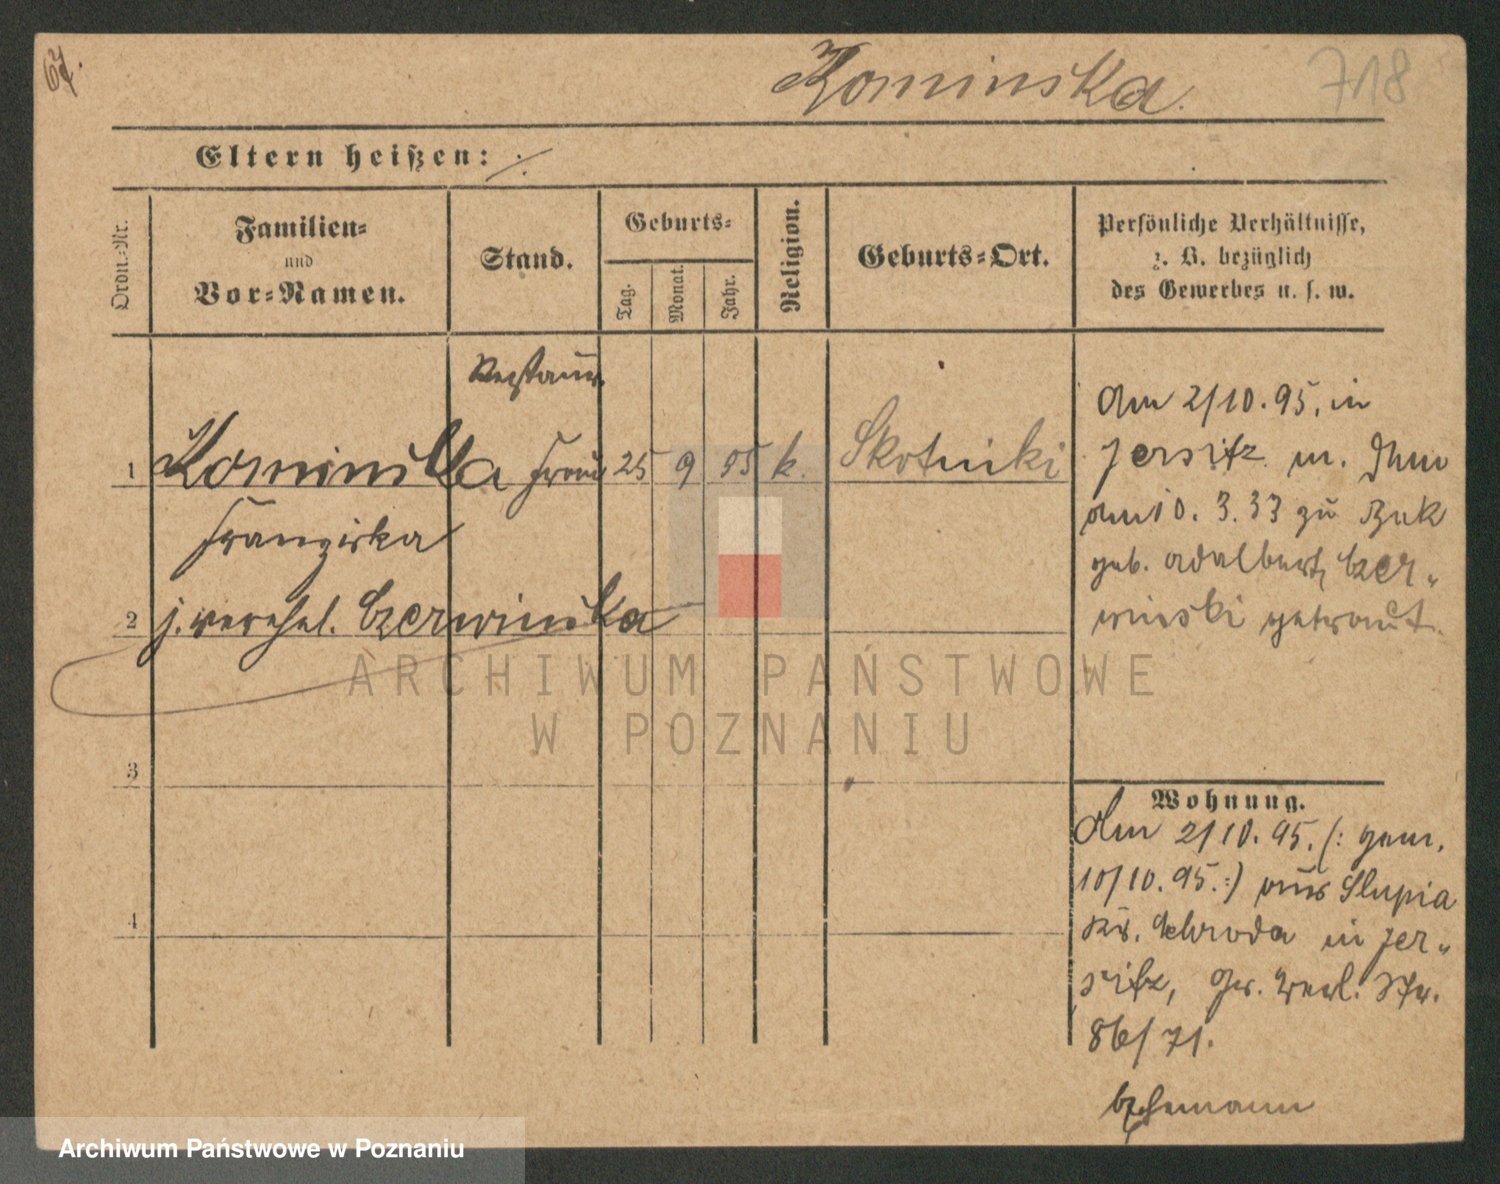 67.
Kominska.
718
Eltern heißen: ./.
Ordn.-Nr.
Familien-
und
Vor-Namen.
Stand.
Geburts-
Tag.
Monat.
Jahr.
Religion.
Geburts-Ort.
Persönliche Verhältnisse,
z. B. bezüglich
des Gewerbes u. s. w.
Restaur.
1 Kominska frau 25 9 55 k. Skotniki
Franziska
2 j. verehel. Czerwinska
3
4
Am 2/10. 95. in
Jersitz m. Ihm
am 10. 3. 33 zu Buk
geb. Adalbert Czer-
winski getraut.
Wohnung.
Am 2/10. 95. (: gem.
10/10. 95. :) aus Slupia
Kr. Schroda in Jer-
sitz, Gr. Berl. Str.
86/71.
ARCHIWUM PAŃSTWOWE
W POZNANIU
Archiwum Państwowe w Poznaniu